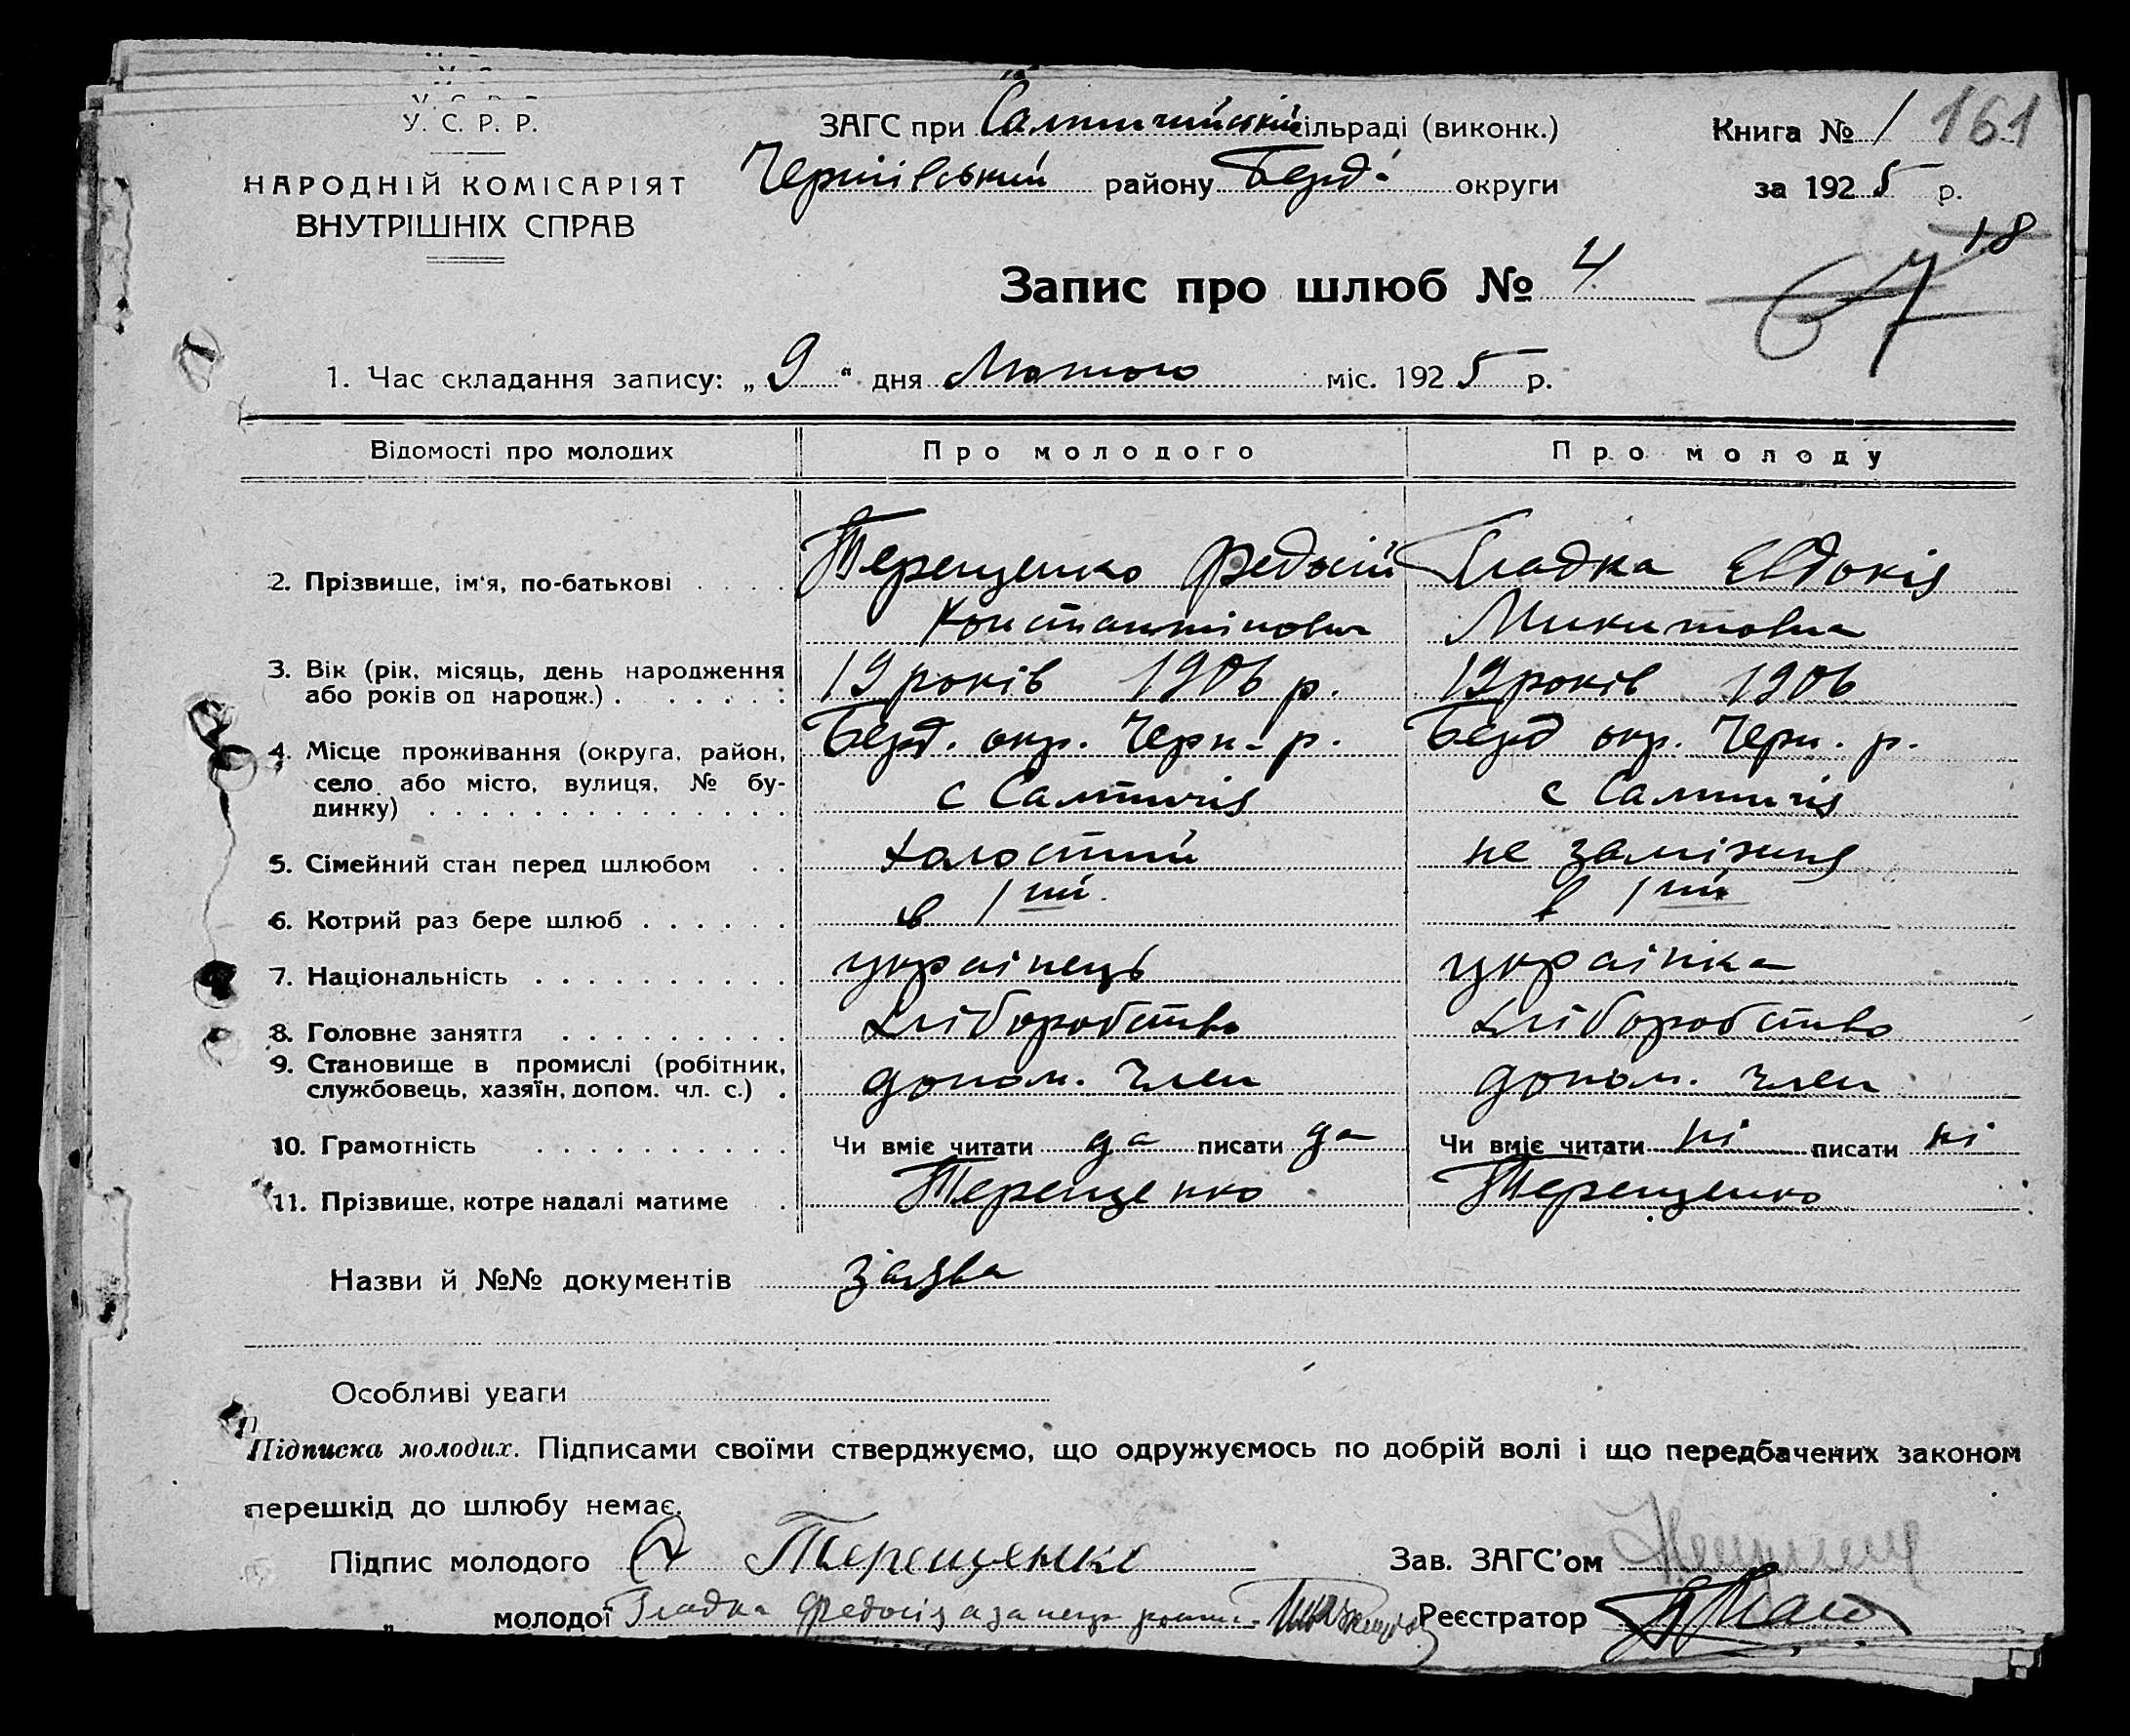 У. С. Р. Р.
НАРОДНІЙ КОМІСАРІЯТ
ВНУТРІШНІХ СПРАВ
ЗАГС при Салтичийській сільраді (виконк.)
Чернігівський району Берд. округи
Книга № 1 161
за 1925 р.
18
67
Запис про шлюб № 4
1. Час складання запису: „9“ дня Лютого міс. 1925 р.
Відомості про молодих Про молодого Про молоду
2. Прізвище, ім'я, по-батькові . . . . Терещенко Федосій Гладка Євдокія
Константінович Микитовна
3. Вік (рік, місяць, день народження
або років од народж.) . . . . . . : 19 років 1906 р. 19 років 1906
4. Місце проживання (округа, район, Берд. окр. Черн. р. Берд окр. Черн. р.
село або місто, вулиця, № бу-
динку) . . . . . . . . . . . . . . с Салтичія с Салтичія
5. Сімейний стан перед шлюбом . . холостий не заміжня
6. Котрий раз бере шлюб . . . . . . в 1ий в 1ий
7. Національність . . . . . . . . . . українець українка
8. Головне заняття . . . . . . . . . хліборобство хліборобство
9. Становище в промислі (робітник,
службовець, хазяїн, допом. чл. с.) . допом. член допом. член
10. Грамотність . . . . . . . . . . Чи вміє читати да писати да Чи вміє читати ні писати ні
11. Прізвище, котре надалі матиме . Терещенко Терещенко
Назви й №№ документів заява
Особливі уваги
Підписка молодих. Підписами своїми стверджуємо, що одружуємось по добрій волі і що передбачених законом
перешкід до шлюбу немає.
Підпис молодого Терещенко Зав. ЗАГС'ом
„ молодої Гладка Федосія а за неї Реєстратор